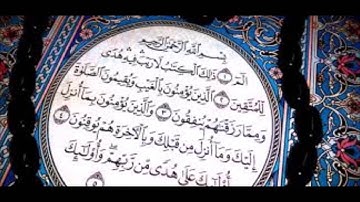 بِسْمِ اللَّهِ الرَّحْمَٰنِ الرَّحِيمِ
الم ١ ذَٰلِكَ الْكِتَابُ لَا رَيْبَ فِيهِ هُدًى
لِّلْمُتَّقِينَ ٢ الَّذِينَ يُؤْمِنُونَ بِالْغَيْبِ وَيُقِيمُونَ الصَّلَاةَ
وَمِمَّا رَزَقْنَاهُمْ يُنفِقُونَ ٣ وَالَّذِينَ يُؤْمِنُونَ بِمَا أُنزِلَ
إِلَيْكَ وَمَا أُنزِلَ مِن قَبْلِكَ وَبِالْآخِرَةِ هُمْ يُوقِنُونَ ٤
أُولَٰئِكَ عَلَىٰ هُدًى مِّن رَّبِّهِمْ وَأُولَٰئِكَ
٥